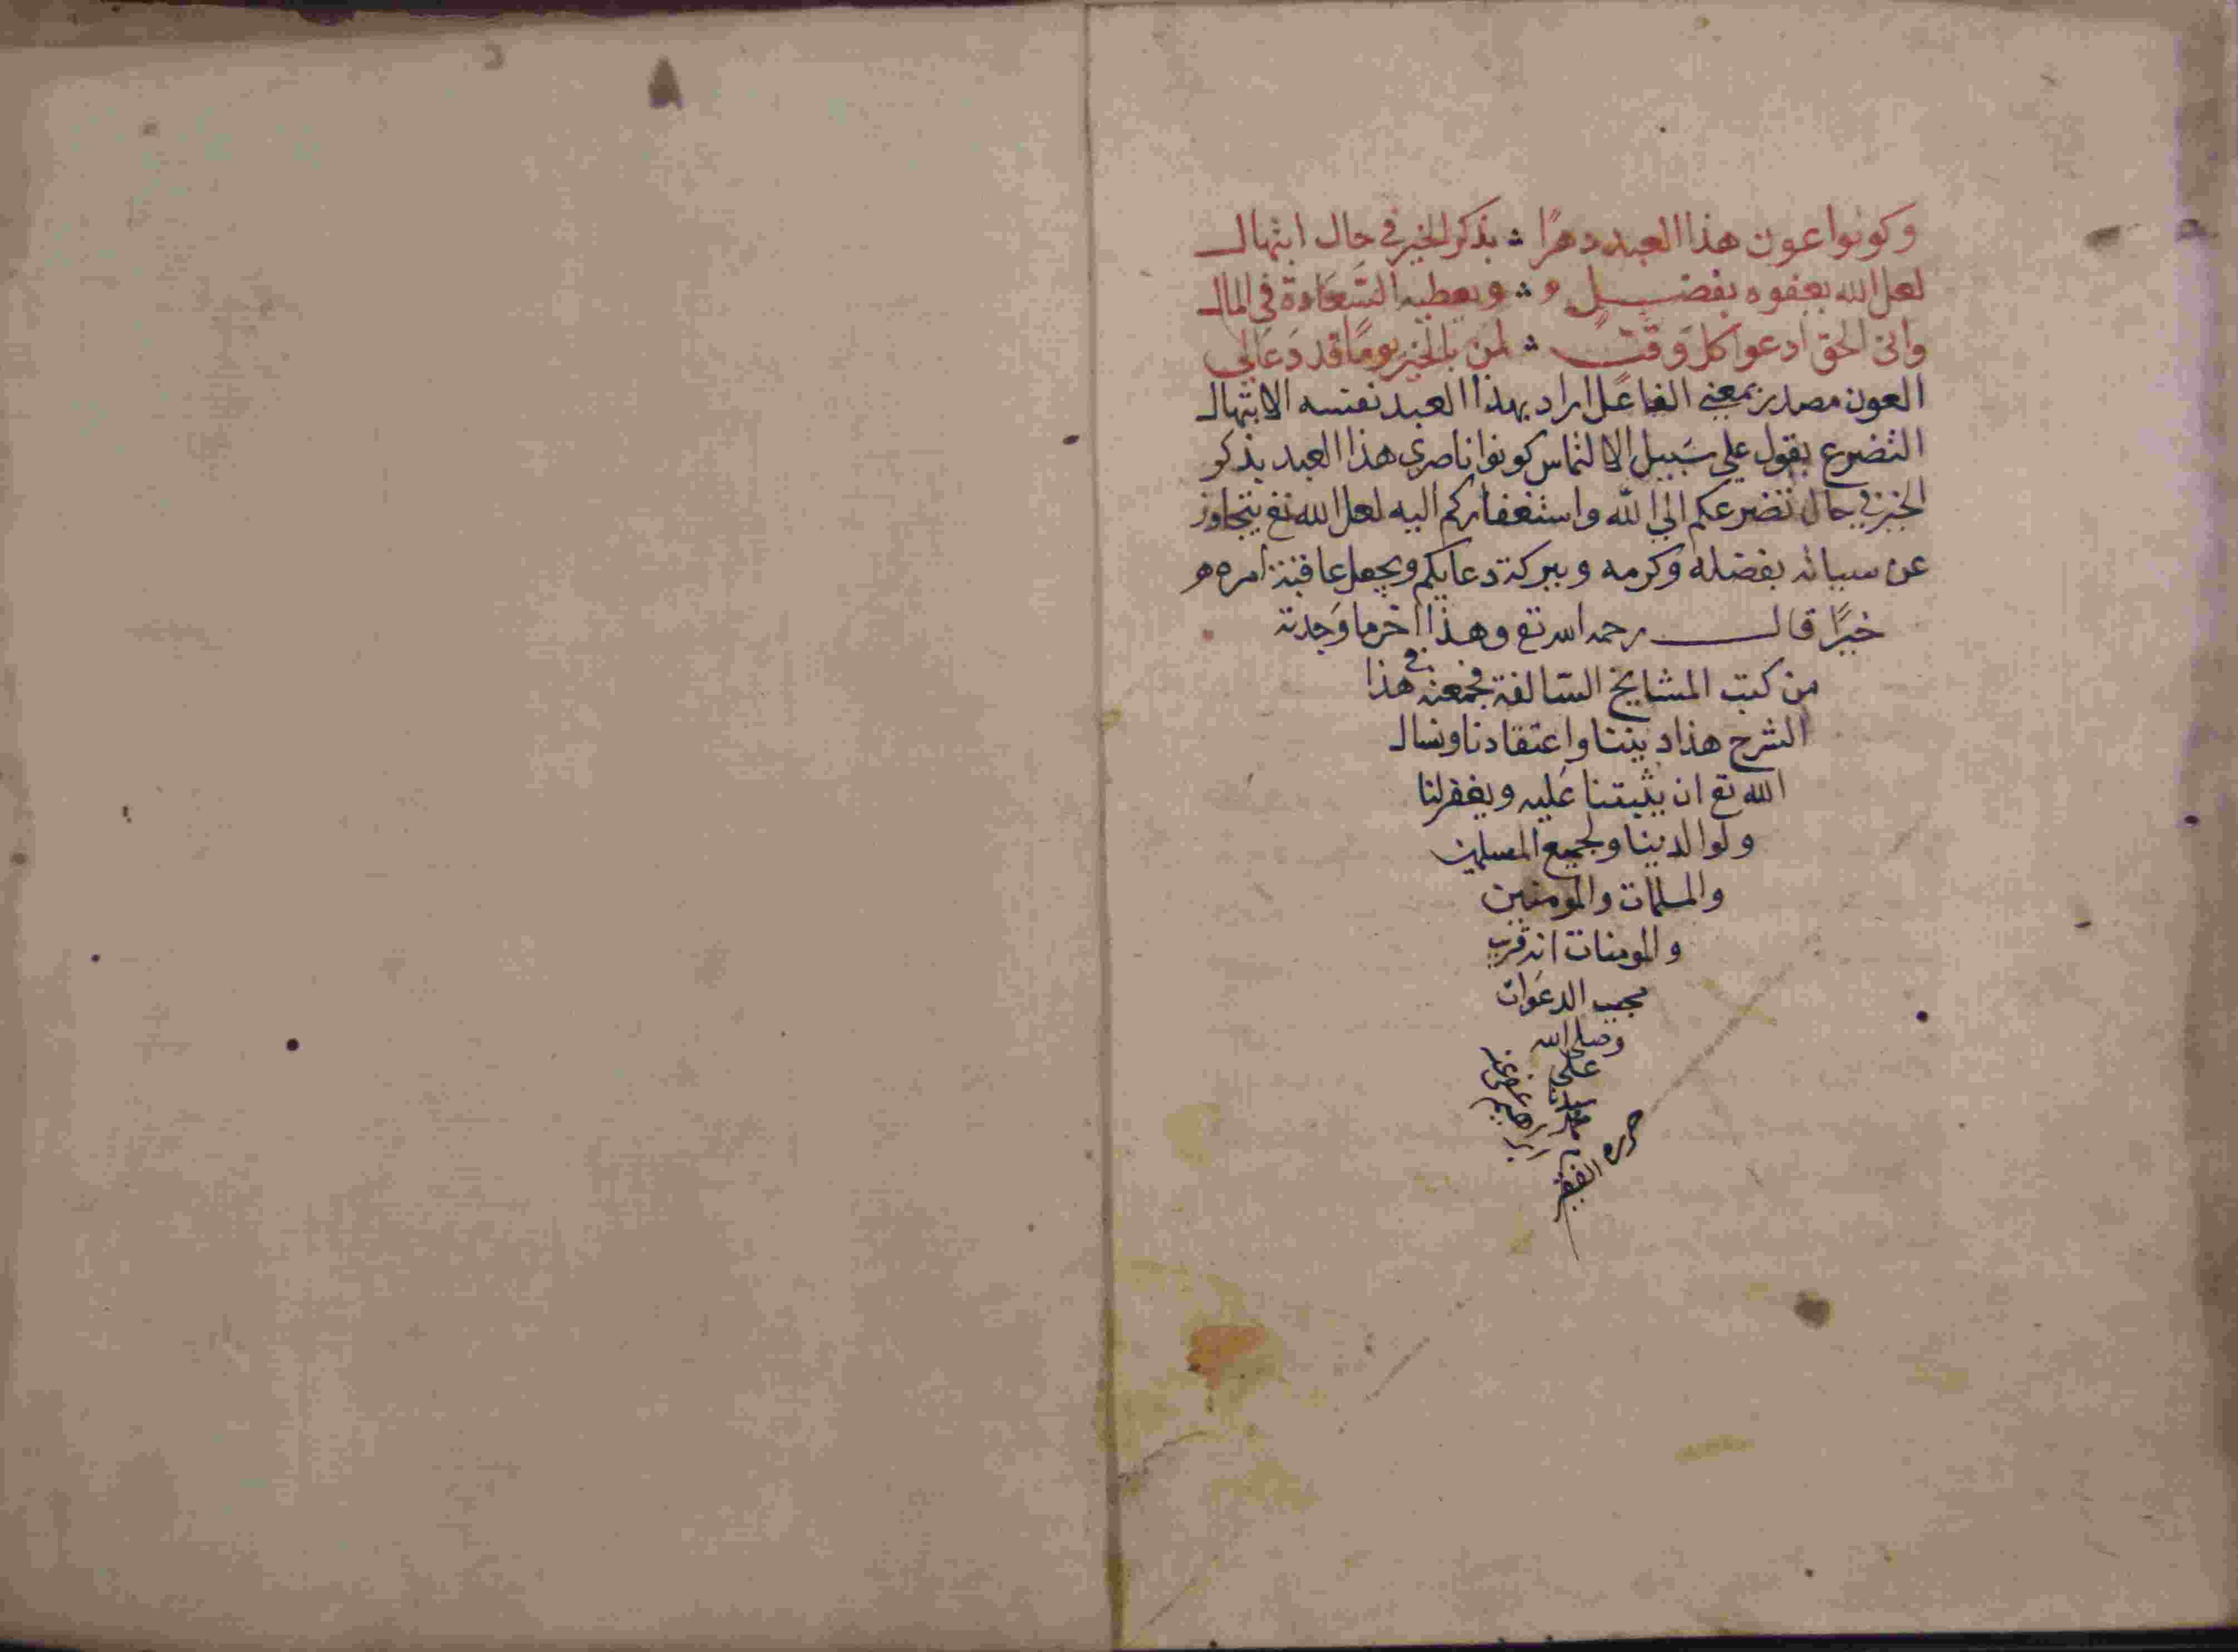 وكونوا عون هذا العبد دهرًا ؞ بذكر الخير في حال ابتهال
لعل الله يعفوه بفضل و ؞ ويعطيه السَّعَادة في المال
واني الحق ادعوا كل وَقتٍ ؞ لمن بالخير يومًا قد دَعَالي
العون مصدر بمعنى الفاعل اراد بهذا العبد نفسه الابتهال
التضرع يقول على سَبيل الالتماس كونوا ناصري هذا العبد بذكر
الخير في حال تضرعكم الى الله واستغفاركم اليه لعل الله تع يتجاوز
عن سيياته بفضله وكرمه وببركة دعايكم ويجعل عاقبة امره هو
خيرًا قال رحمه الله تع وهذا اخر ما وَجدته
من كتب المشايخ السّالفة فجمعته في هذا
الشرح هذا ديننا واعتقادنا ونسال
الله تع ان يثبتنا عَليه ويغفر لنا
ولوالدينا ولجميع المسلمين
والمسلمات والمومنين
والمومنات انه قريب
مجيب الدعَوات
وصلى الله
على
سيدنا
محمد
حرره
الفقير
ابراهيم